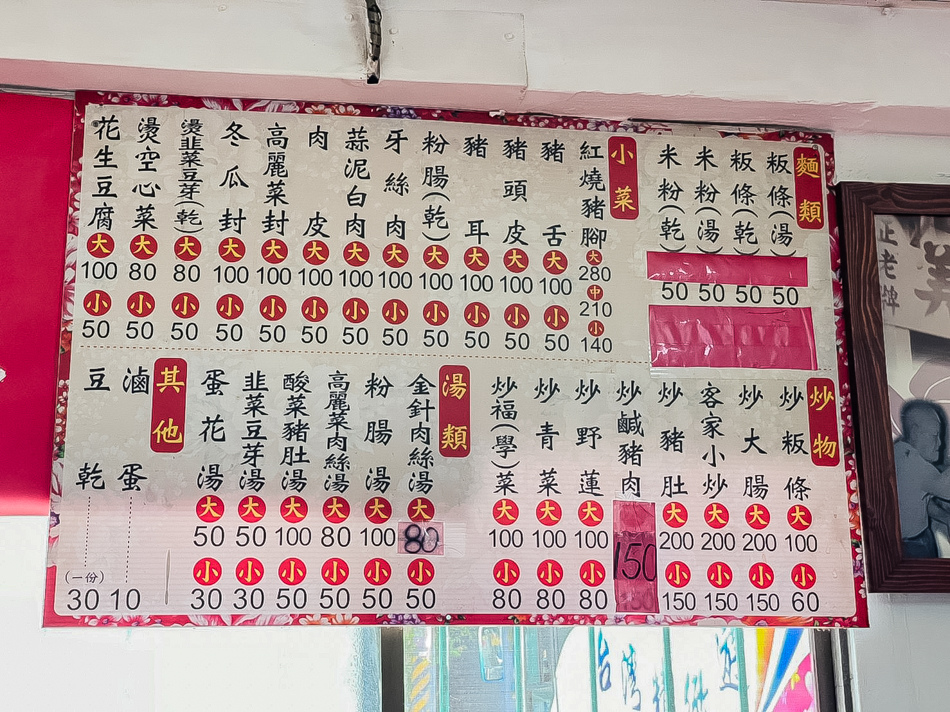 麵類
粄條(湯) 50
粄條(乾) 50
米粉(湯) 50
米粉(乾) 50
小菜
紅燒豬腳 大 280 中 210 小 140
豬舌 大 100 小 50
豬頭皮 大 100 小 50
豬耳 大 100 小 50
粉腸(乾) 大 100 小 50
牙絲肉 大 100 小 50
蒜泥白肉 大 100 小 50
肉皮 大 100 小 50
高麗菜封 大 100 小 50
冬瓜封 大 100 小 50
燙韭菜豆芽(乾) 大 80 小 50
燙空心菜 大 80 小 50
花生豆腐 大 100 小 50
炒物
炒粄條 大 100 小 60
炒大腸 大 200 小 150
客家小炒 大 200 小 150
炒豬肚 大 200 小 150
炒鹹豬肉 150
炒野蓮 大 100 小 80
炒青菜 大 100 小 80
炒福(學)菜 大 100 小 80
湯類
金針肉絲湯 大 80 小 50
粉腸湯 大 100 小 50
高麗菜肉絲湯 大 80 小 50
酸菜豬肚湯 大 100 小 50
韭菜豆芽湯 大 50 小 30
蛋花湯 大 50 小 30
其他
滷蛋 10
豆乾 (一份) 30
正老牌
美
台灣